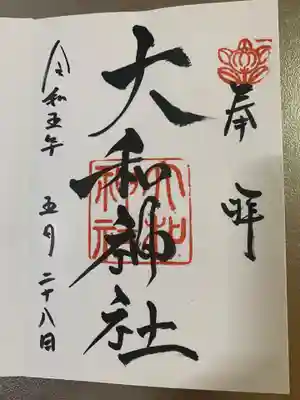 奉拝
大和神社
令和五年 五月二十八日